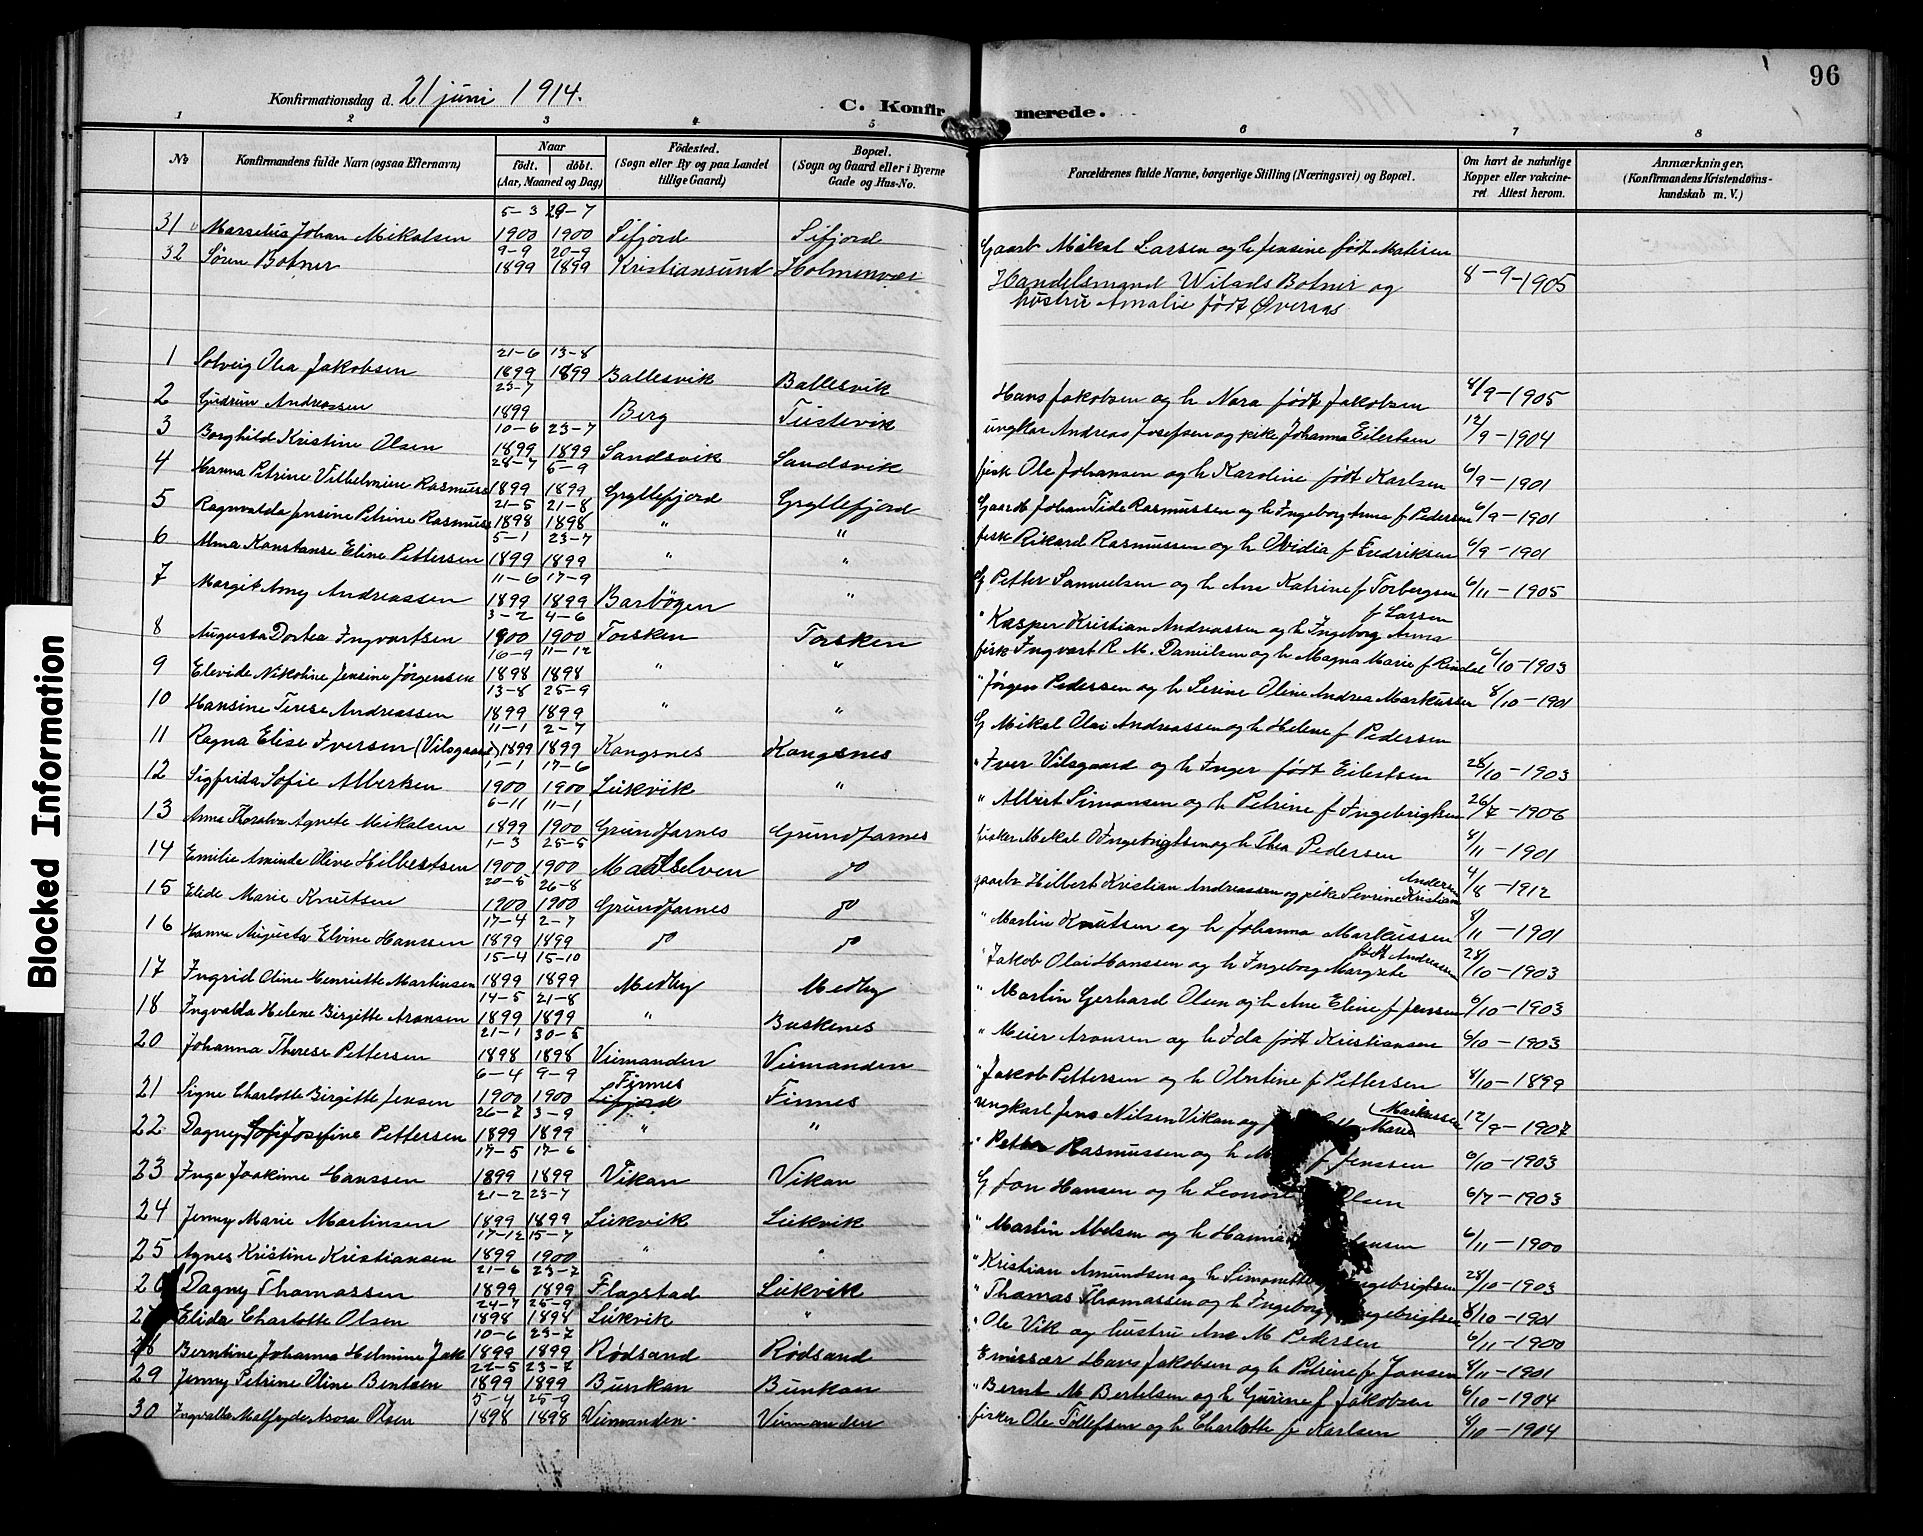 96
Konfirmationsdag d. 21 juni 1914.
C. Konfirmerede.
1 2 3 4 5 6 7 8
No
Konfirmandens fulde Navn (ogsaa Efternavn)
Naar
født. døbt.
(Aar, Maaned og Dag)
Fødested.
(Sogn eller By og paa Landet
tillige Gaard)
Bopæl.
(Sogn og Gaard eller i Byerne
Gade og Hus-No.
Forældrenes fulde Navne, borgerlige Stilling (Næringsvei) og Bopæl.
Om havt de naturlige
Kopper eller vakcine-
ret Attest herom.
Anmærkninger.
(Konfirmandens Kristendoms-
kundskab m. V.)
5-3 29-7
31 Marselius Johan Mikalsen 1900 1900 Sifjord Sifjord Gaarb Mikal Larsen og h Jensine født
9-9 20-9
32 Søren Botner 1899 1899 Kristiansund Holmenvær Handelsmand Wilads Botner og 8-9-1905
hustru Amalie født Øveraas
21-6 13-8
1 Solveig Olea Jakobsen 1899 1899 Ballesvik Ballesvik Hans Jakobsen og h Nora født Jakobsen 8/9-1905
23-7
2 Gudrun Andreassen 1899 Berg Tustevik ungkar Andreas Josefsen og pike Johanna Eilertsen 12/9-1904
10-6 23-7
3 Borghild Kristine Olsen 1899 1899 Sandsvik Sandsvik fisk Ole Johansen og h Karoline født Karlsen 6/9-1901
28-7 6-9
4 Hanna Petrine Vilhelmine Rasmuss 1899 1899 Gryllefjord Gryllefjord Gaardb Johan Tide Rasmussen og h Ingeborg Anne f Pedersen 6/9-1901
21-5 21-8
5 Ragnvalda Jensine Petrine Rasmuss 1898 1898 " " fisk Rikard Rasmussen og h Ovidia f Fredriksen 6/9-1901
5-1 23-7
6 Alma Konstanse Eline Pettersen 1899 1899 " " G Petter Samuelsen og h Ane Katrine f Torbergsen 6/11-1905
11-6 17-9
7 Margit Amy Andreassen 1899 1899 Barbøgen " " Kasper Kristian Andreassen og h Ingeborg Anna f Larsen
3-2 4-6
8 Augusta Dortea Ingvartsen 1900 1900 Torsken Torsken fisk Ingvart R. M. Danielsen og h Magna Marie f Rindal 6/10-1903
16-9 11-12
9 Elevide Nikoline Jensine Jørgensen 1898 1898 " " " Jørgen Pedersen og h Serine Oline Andrea Markussen 8/10-1901
13-8 25-9
10 Hansine Terese Andreassen 1899 1899 " " G Mikal Olai Andreassen og h Helene f Pedersen
11-1 2-7
11 Ragna Elise Iversen (Vilsgaard) 1899 1899 Kongsnes Kongsnes " Iver Vilsgaard og h Inger født Eilertsen 28/10-1903
1-1 17-6
12 Sigfrida Sofie Albertsen 1900 1900 Lukvik " " Albert Simonsen og h Petrine f Ingebrigtsen 26/7-1906
6-11 11-1
13 Anna Thoralva Agnete Mikalsen 1899 1900 Grundfarnes Grundfarnes fisker Mikal O Ingebrigtsen og h Thea Pedersen 8/11-1901
1-3 25-5
14 Emilie Aminda Olive Hilbertsen 1900 1900 Maalselven do gaarb Hilbert Kristian Andreassen og pike Sevrine Kristian Anders 4/8-1912
20-5 26-8
15 Elide Marie Knutsen 1900 1900 Grundfarnes do " Martin Knutsen og h Johanna Markussen 8/11-1901
17-4 2-7
16 Hanna Augusta Elvine Hanssen 1899 1899 do do " Jakob Olai Hanssen og h Ingeborg Margrete født Andreassen 28/10-1903
15-4 15-10
17 Ingrid Oline Henriette Martinsen 1899 1899 Medby Medby " Martin Gerhard Olsen og h Ane Eline f Jensen 6/10-1903
14-5 21-8
18 Ingvalda Helene Birgitte Aronsen 1899 1899 " Buskenes " Meier Aronsen og h Ida født Kristiansen 6/10-1903
21-1 30-5
20 Johanna Therese Pettersen 1898 1898 Vumanden Vumanden " Jakob Pettersen og h Olentine f Pettersen 8/10-1899
6-4 9-9 Finnes
21 Signe Charlotte Birgitte Jensen 1900 1900 Sifjord Finnes ungkarl Jens Nilsen Vikan og Marie Markussen 12/9-1907
26-7 3-9
22 Dagny Sofi Josefine Pettersen 1899 1899 " " " Petter Rasmussen og h M f Jenssen 6/10-1903
17-5 17-6
23 Inga Joakime Hanssen 1899 1899 Vikan Vikan G Jon Hansen og h Leonor Olsen 6/7-1903
21-2 23-7
24 Jenny Marie Martinsen 1899 1899 Lukvik Lukvik " Martin Abelsen og h Hanna 6/11-1900
17-12 15-7
25 Agnes Kristine Kristiansen 1899 1900 " " " Kristian Amundsen og h Simonette Ingebrigtsen 28/10-1903
21-6 23-2
26 Dagny Thomassen 1899 1899 Flagstad Lukvik " Thomas Thomassen og h Ingeborg Ingebrigtsen 8/10-1901
24-7 25-9
27 Elida Charlotte Olsen 1898 1898 Lukvik " " Ole Vik og hustru Ane M Pedersen 6/11-1900
10-6 23-7
28 Berntine Johanna Helmine Jak 1899 1899 Rødsand Rødsand Emissær Hans Jakobsen og h Petrine f Jansen 8/11-1901
22-5 23-7
29 Jenny Petrine Oline Bentsen 1899 1899 Bunkan Bunkan " Bernt M Bertelsen og h Gurine f Jakobsen 6/10-1904
5-4 25-9
30 Ingvalla Malfryde Asora Olsen 1898 1898 Vumanden Vumanden fisker Ole Tollefsen og h Charlotte f Karlsen 8/10-1904
Blocked Information